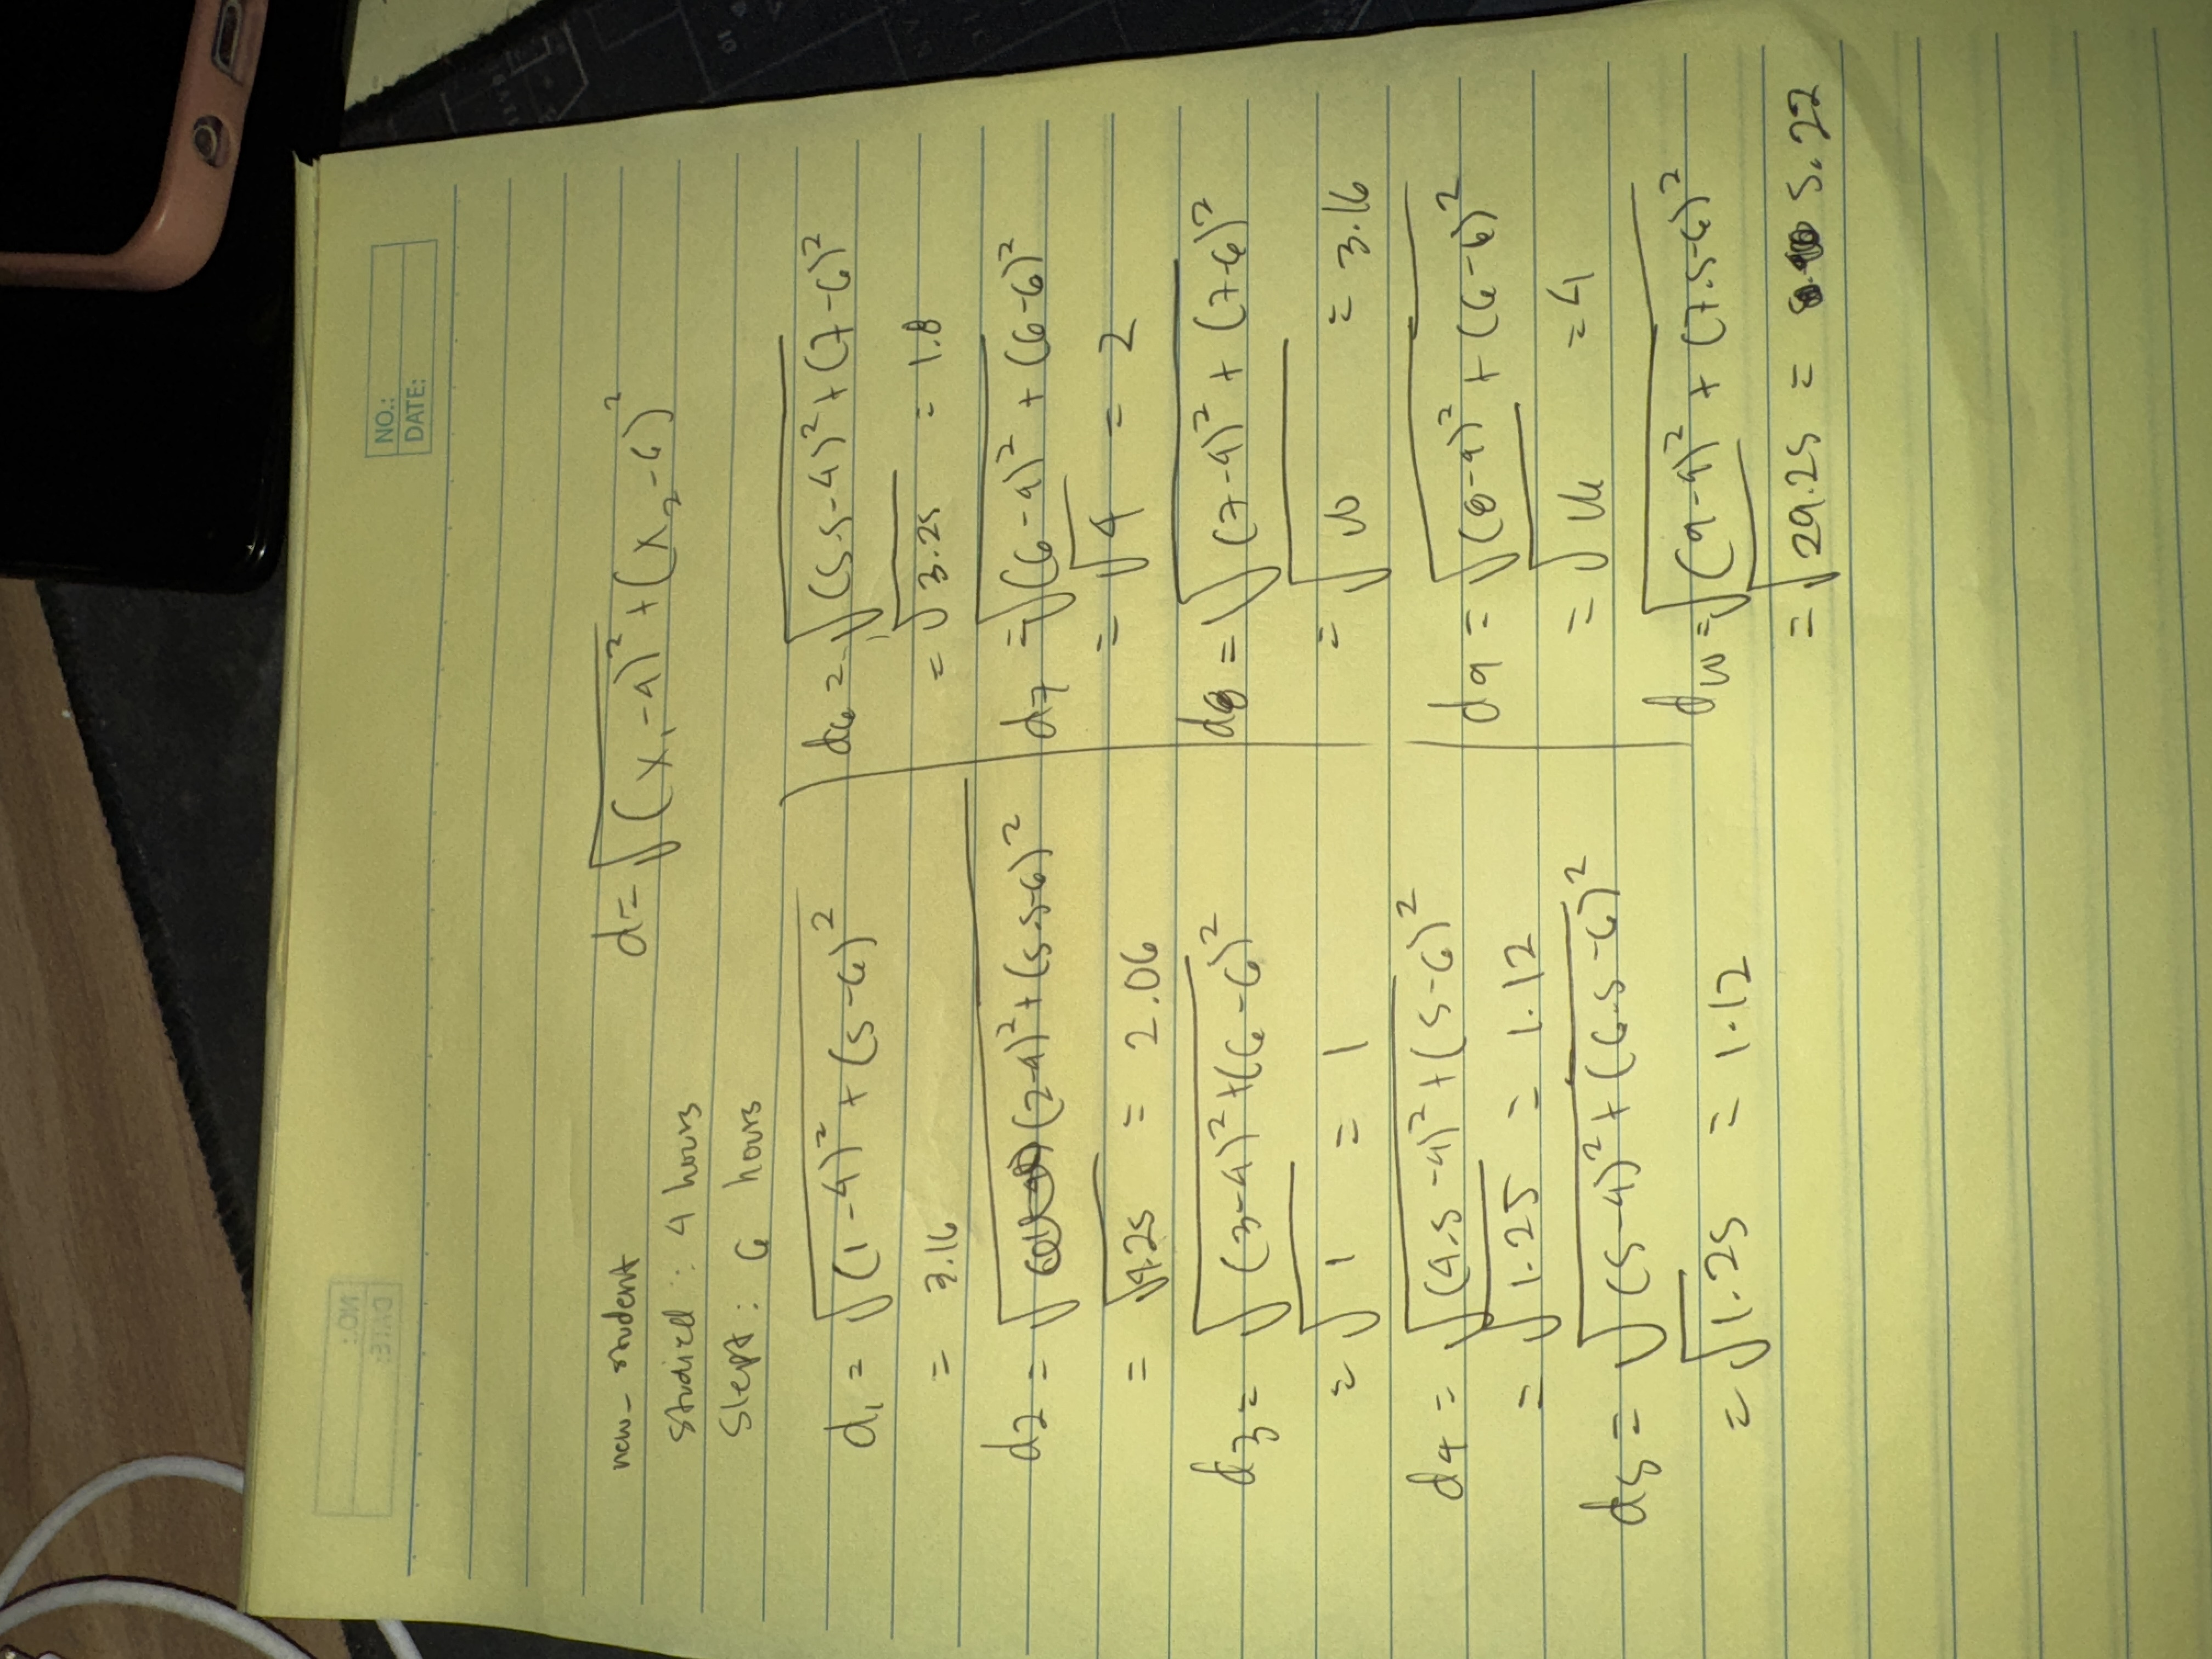 NO.:
DATE:
NO.:
DATE:
new_student
studied : 4 hours
Slept : 6 hours
d = √(x₁-4)² + (x₂-6)²
d₁ = √(1-4)² + (5-6)²
= 3.16
d2 = √(2-4)² + (5.5-6)²
= √4.25 = 2.06
d3 = √(3-4)² + (6-6)²
= √1 = 1
d4 = √(4.5-4)² + (5-6)²
= √1.25 = 1.12
d5 = √(5-4)² + (6.5-6)²
= √1.25 = 1.12
d6 = √(5.5-4)² + (7-6)²
= √3.25 = 1.8
d7 = √(6-4)² + (6-6)²
= √4 = 2
d8 = √(7-4)² + (7-6)²
= √10 = 3.16
d9 = √(8-4)² + (6-6)²
= √16 = 4
d10 = √(9-4)² + (7.5-6)²
= √29.25 = 5.22